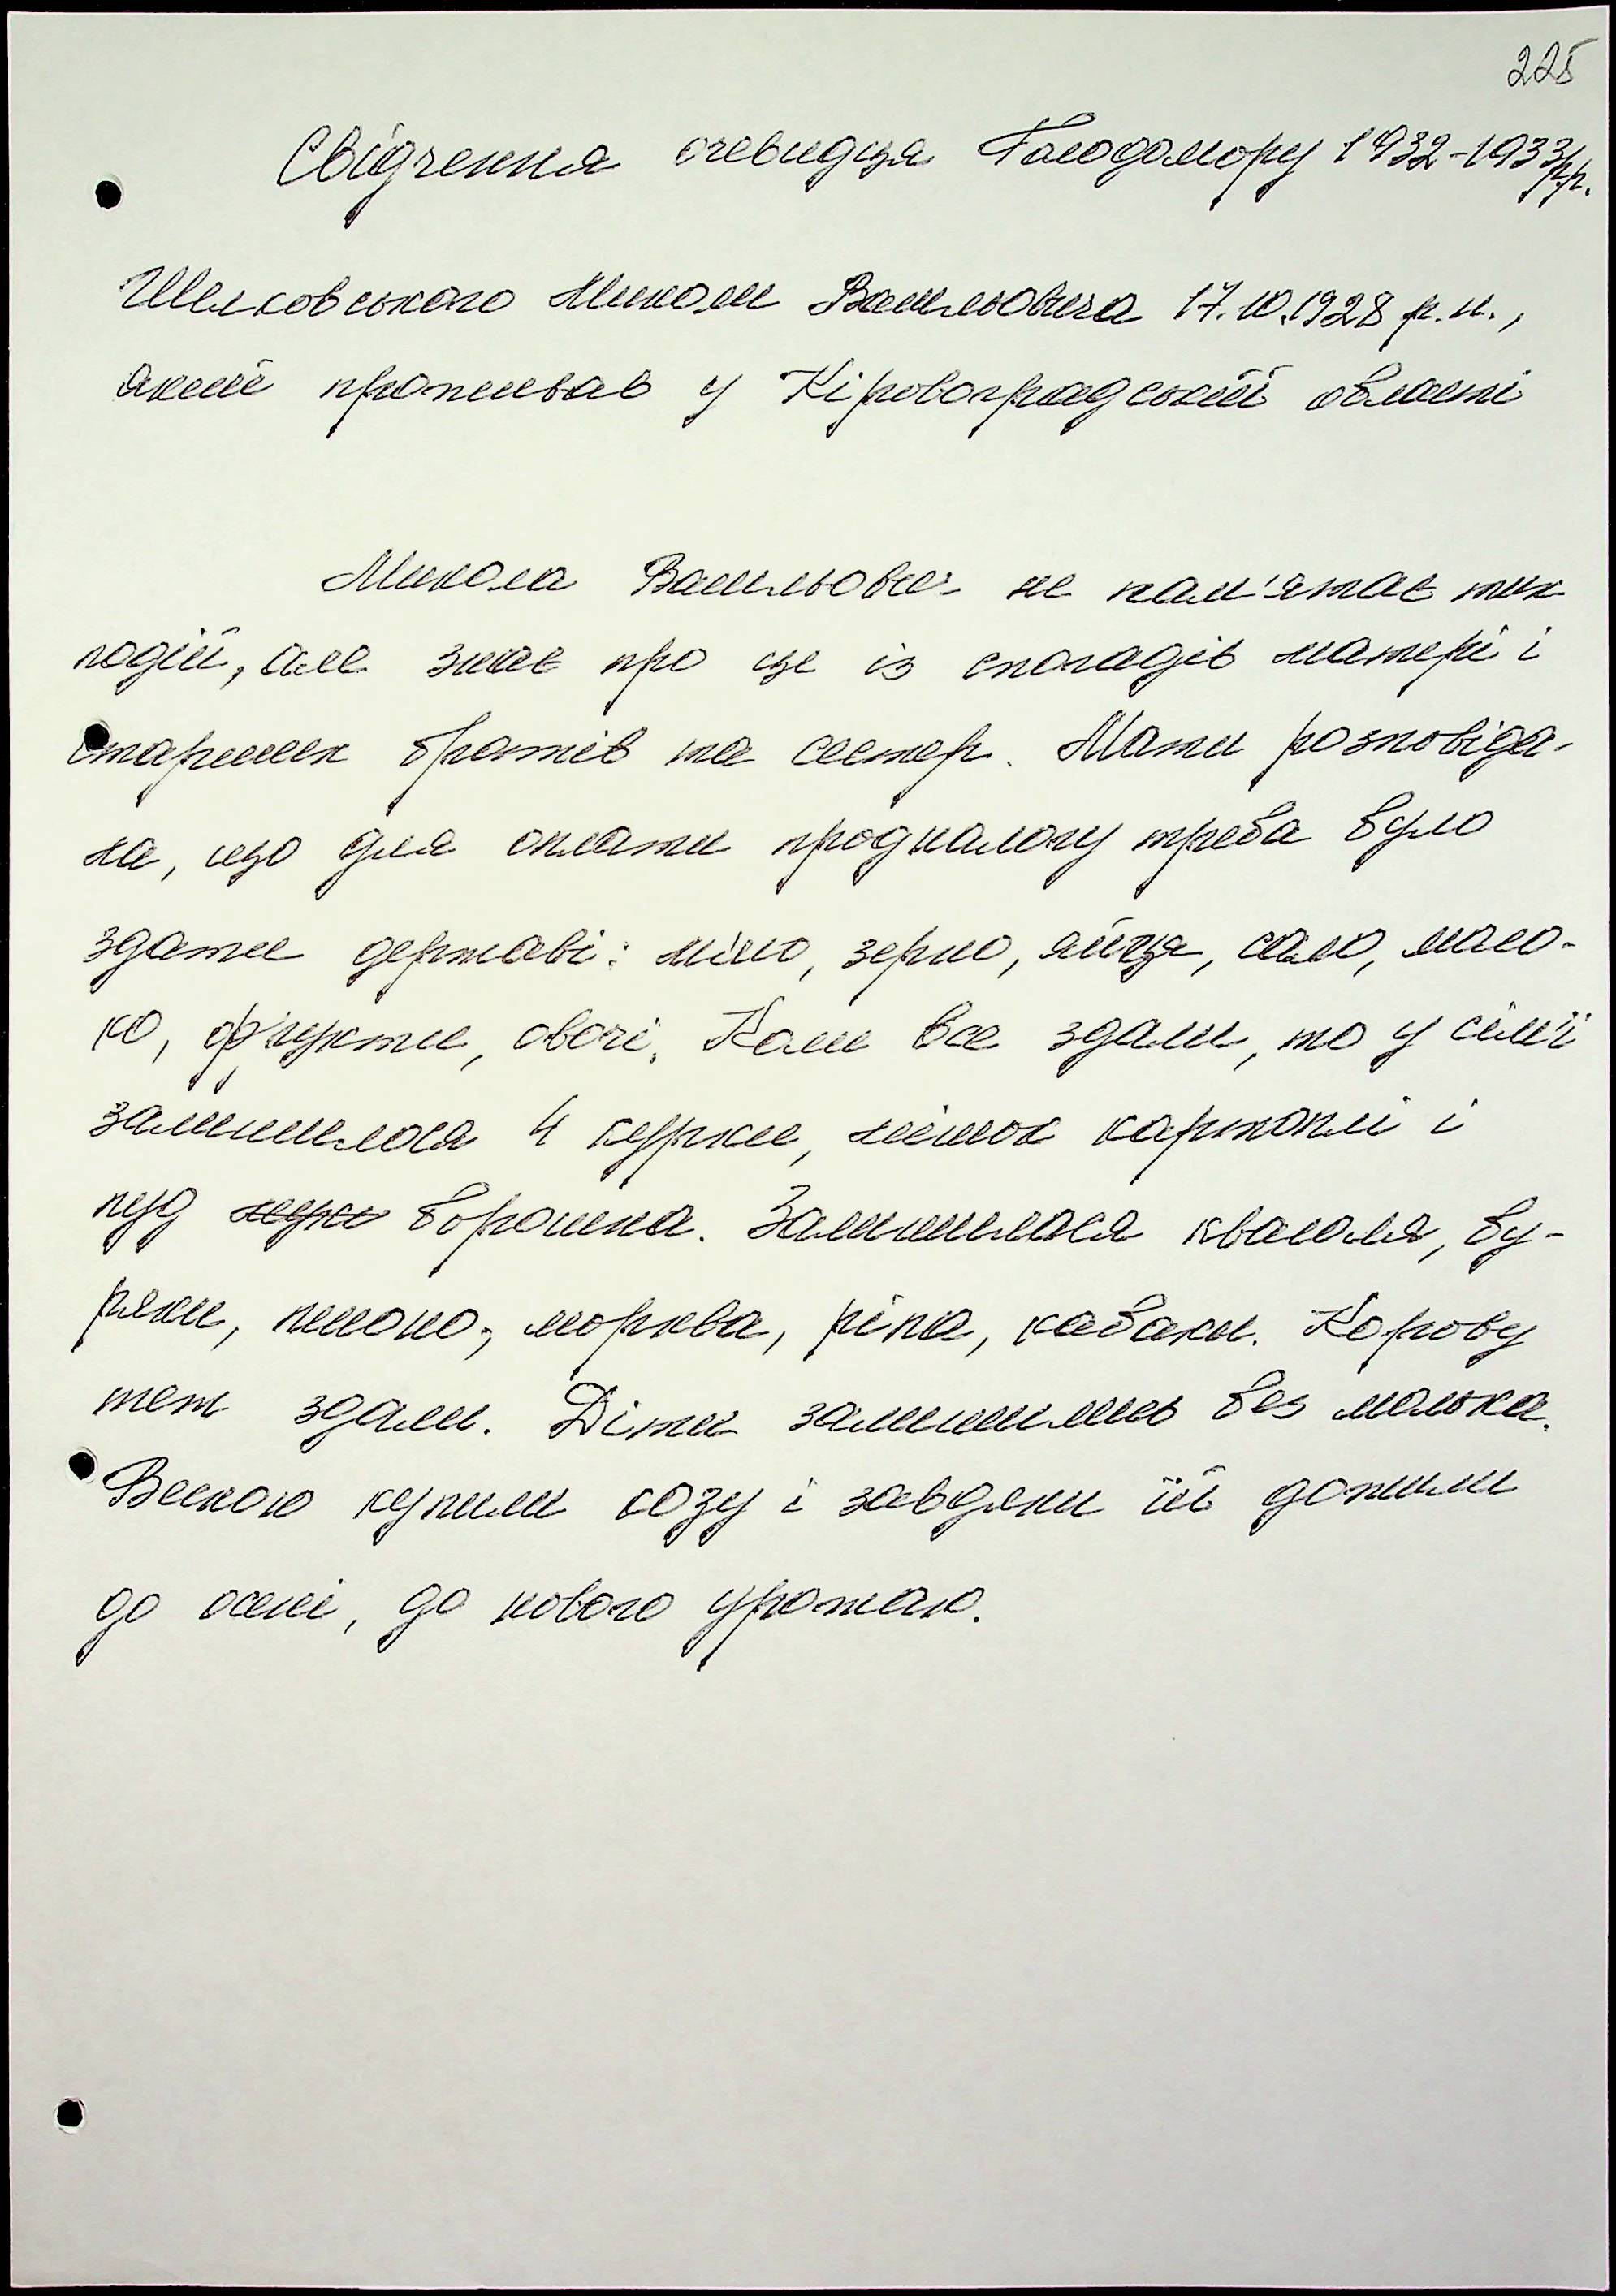 225
Свідчення очевидця Голодомору 1932-1933рр.
Шелковського Миколи Васильовича 17.10.1928 р.н.,
який проживав у Кіровоградській області
Микола Васильович не пам'ятає тих
подій, але знає про це із спогадів матері і
старших братів та сестер. Мати розповіда-
ла, що для оплати продналогу треба було
здати державі: м'ясо, зерно, яйця, сало, моло-
ко, фрукти, овочі. Коли все здали, то у сім'ї
залишилося 4 курки, мішок картоплі і
пуд борошна. Залишилася квасоля, бу-
ряки, пшоно, морква, ріпа, кабаки. Корову
теж здали. Діти залишились без молока.
Весною купили козу і завдяки їй дожили
до осені, до нового урожаю.